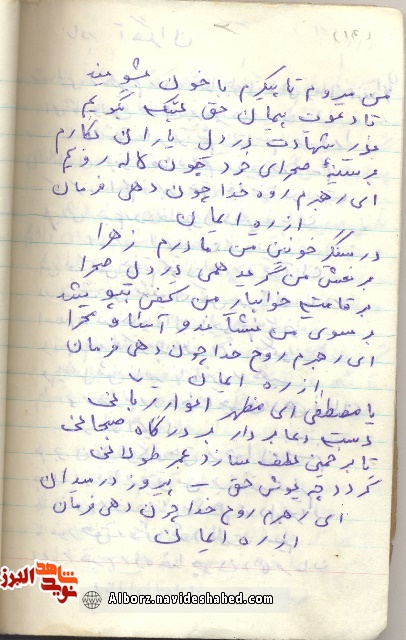 من میروم تا پیکرم با خون بشویند
تا دعوت پیمان حق لبیک گویم
بذر شهادت در دل یاران بکارم
بر سینهٔ صحرای خود چون لاله رویم
ای رهبرم روح خدا چون دهی فرمان
از ره ایمان
در سنگر خونین من مادرم زهرا
بر نعش من گرید همی در دل صحرا
بر قامت خونبار من کفن بپوشد
بر سوی من بشتابد و آسا و
ای رهبرم روح خدا چون دهی فرمان
از ره ایمان
یا مصطفی ای مظهر انوار ربانی
دست دعا بردار بر درگاه سبحانی
تا بر خمینی لطف سازد عمر طولانی
گردد جیوش حق پیروز در میدان
ای رهبرم روح خدا چون دهی فرمان
از ره ایمان
نوید شاهد البرز
Alborz.navideshahed.com